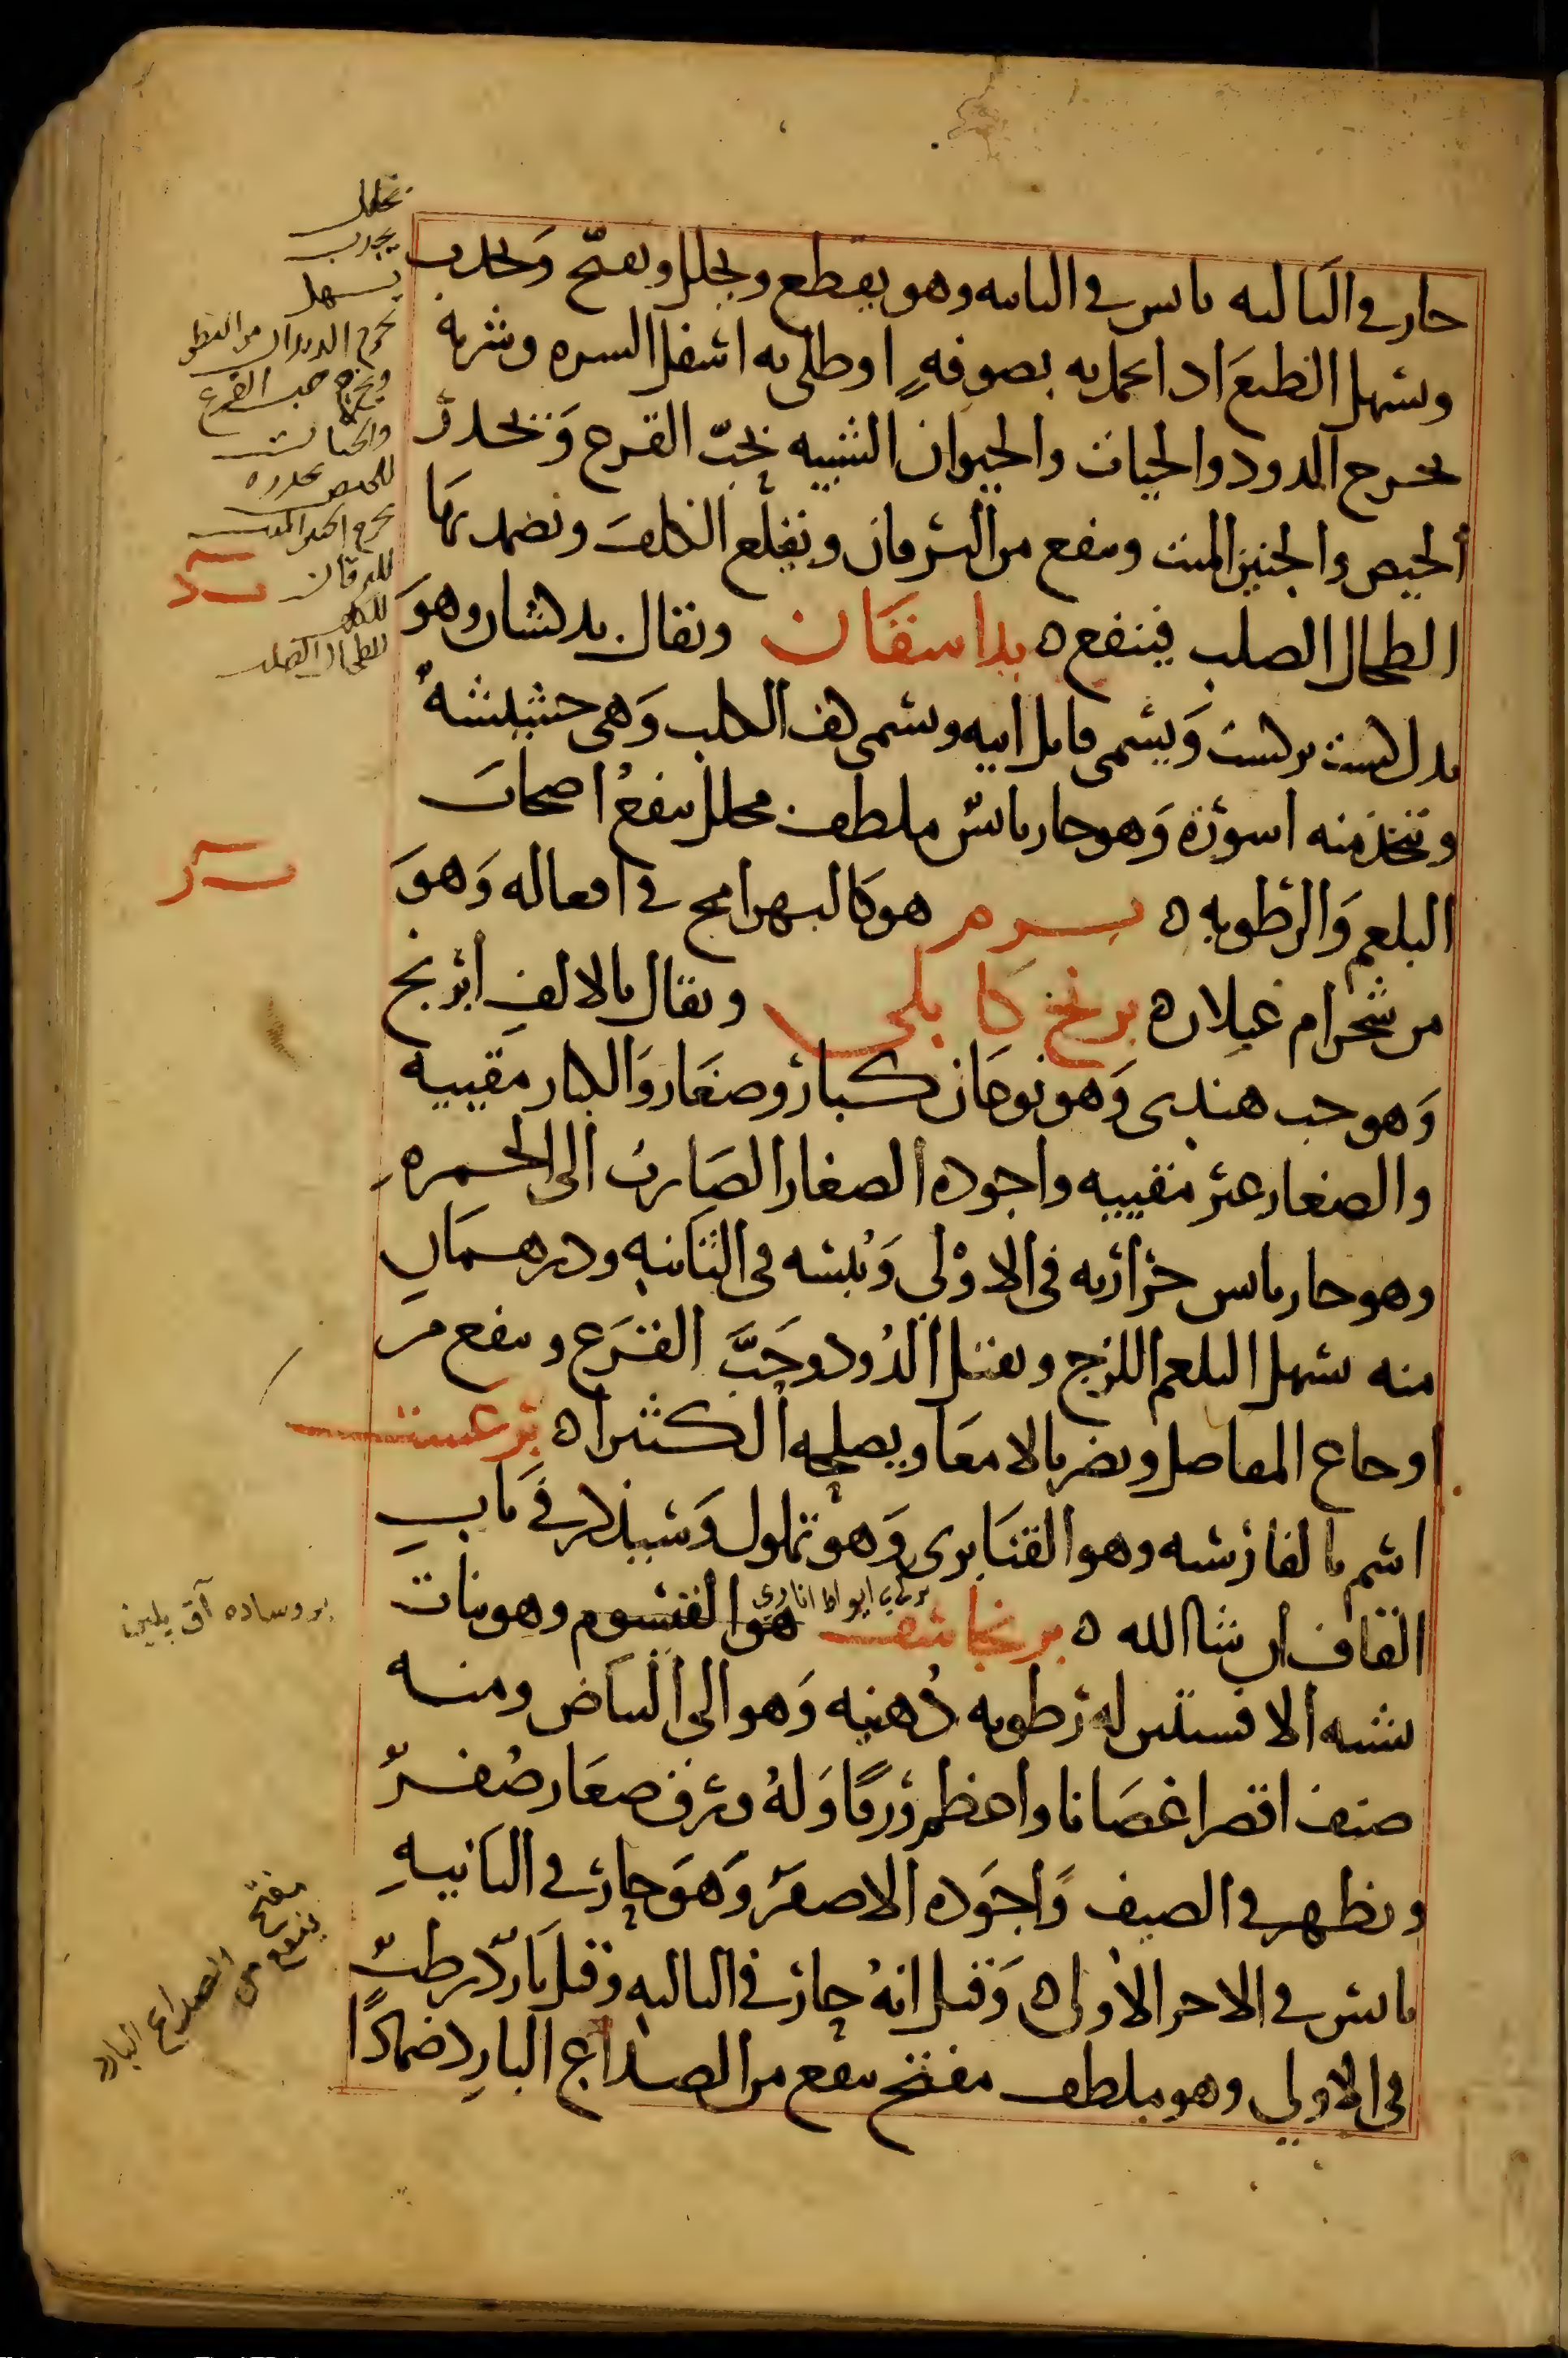 حار في الثالثه يابس في الثانيه وهو يقطع ويحلل ويفتح ويجذب
ويسهل الطبع اذا احتمل به بصوفه او طلي به اسفل السره وشربه
يخرج الدود والحيات والحيوان الشبيه بحب القرع ويحدر
الحيض والجنين الميت وينفع من اليرقان ويقلع الكلف ويضمد بها
الطحال الصلب فينفع ه بداسفان ويقال بدلشان وهو
بدل لست برلست ويسمى قاتل ابيه ويسمى كف الكلب وهي حشيشه
وتتخذ منه اسورة وهو حار يابس ملطف محلل ينفع اصحاب
البلغم والرطوبه ه برم هو كالبهرامج في افعاله وهو
من شجر ام غيلان ه برنج كابلي ويقال بالالف ابرنج
وهو حب هندي وهو نوعان كبار وصغار والكبار مقييه
والصغار غير مقييه واجوده الصغار الضارب الى الحمره
وهو حار يابس حرارته في الاولى ويبسه في الثانيه ودرهمان
منه يسهل البلغم اللزج ويقتل الدود وحب القرع وينفع من
اوجاع المفاصل ويضر بالامعا ويصلحه الكثيرا ه برغست
اسم بالفارسيه وهو القنابرى وهو تملول وسيذكر في باب
القاف ان شا الله ه برنجاسف هو القيسوم وهو نبات
يشبه الافسنتين له رطوبه دهنيه وهو الى البياض ومنه
صنف اقصر اغصانا واعظم ورقا وله ورق صغار صفر
ويظهر في الصيف واجوده الاصفر وهو حار في الثانيه
يابس في الاخر الاولى ه وقيل انه حار في الثالثه وقيل بارد رطب
في الاولى وهو ملطف مفتح ينفع من الصداع البارد ضمادا
يحلل
يجذب
يسهل
يخرج الديدان من البطن
ويخرج حب القرع
والحيات
للحيض يحدره
يخرج الجنين الميت
لليرقان
للكلف
للطحال الصلب
مفتح
ينفع من
الصداع البارد